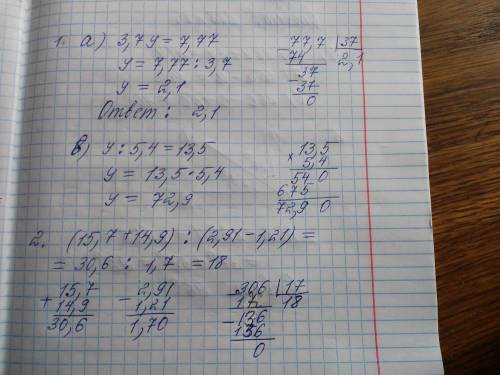 1. а) 3,7y = 7,77
y = 7,77 : 3,7
y = 2,1
Ответ: 2,1
77,7 | 37
- 74 2,1
37
- 37
0
в) y : 5,4 = 13,5
y = 13,5 · 5,4
y = 72,9
13,5
× 5,4
54 0
675
72,9 0
2. (15,7 + 14,9) : (2,91 - 1,21) =
= 30,6 : 1,7 = 18
15,7
+ 14,9
30,6
2,91
- 1,21
1,70
306 | 17
- 17 18
- 136
136
0